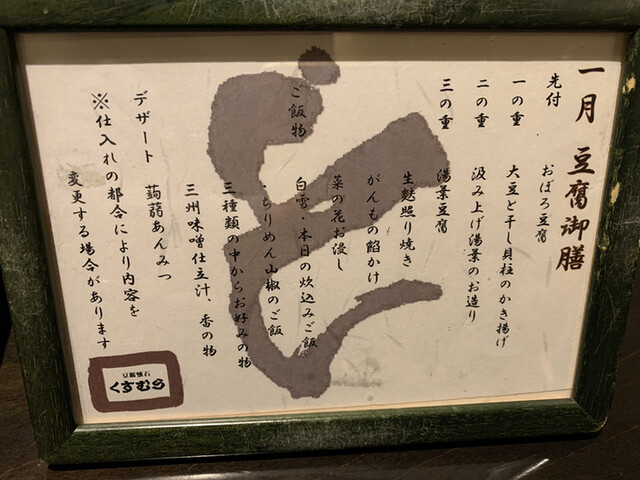 一月 豆腐御膳
先付 おぼろ豆腐
一の重 大豆と干し貝柱のかき揚げ
二の重 汲み上げ湯葉のお造り
三の重 湯葉豆腐
生麩照り焼き
がんもの餡かけ
菜の花お浸し
ご飯物 白雪・本日の炊込みご飯
・ちりめん山椒のご飯
三種類の中からお好みの物
三州味噌仕立汁、香の物
デザート 蒟蒻あんみつ
※仕入れの都合により内容を
変更する場合があります
豆腐懐石
くすむら